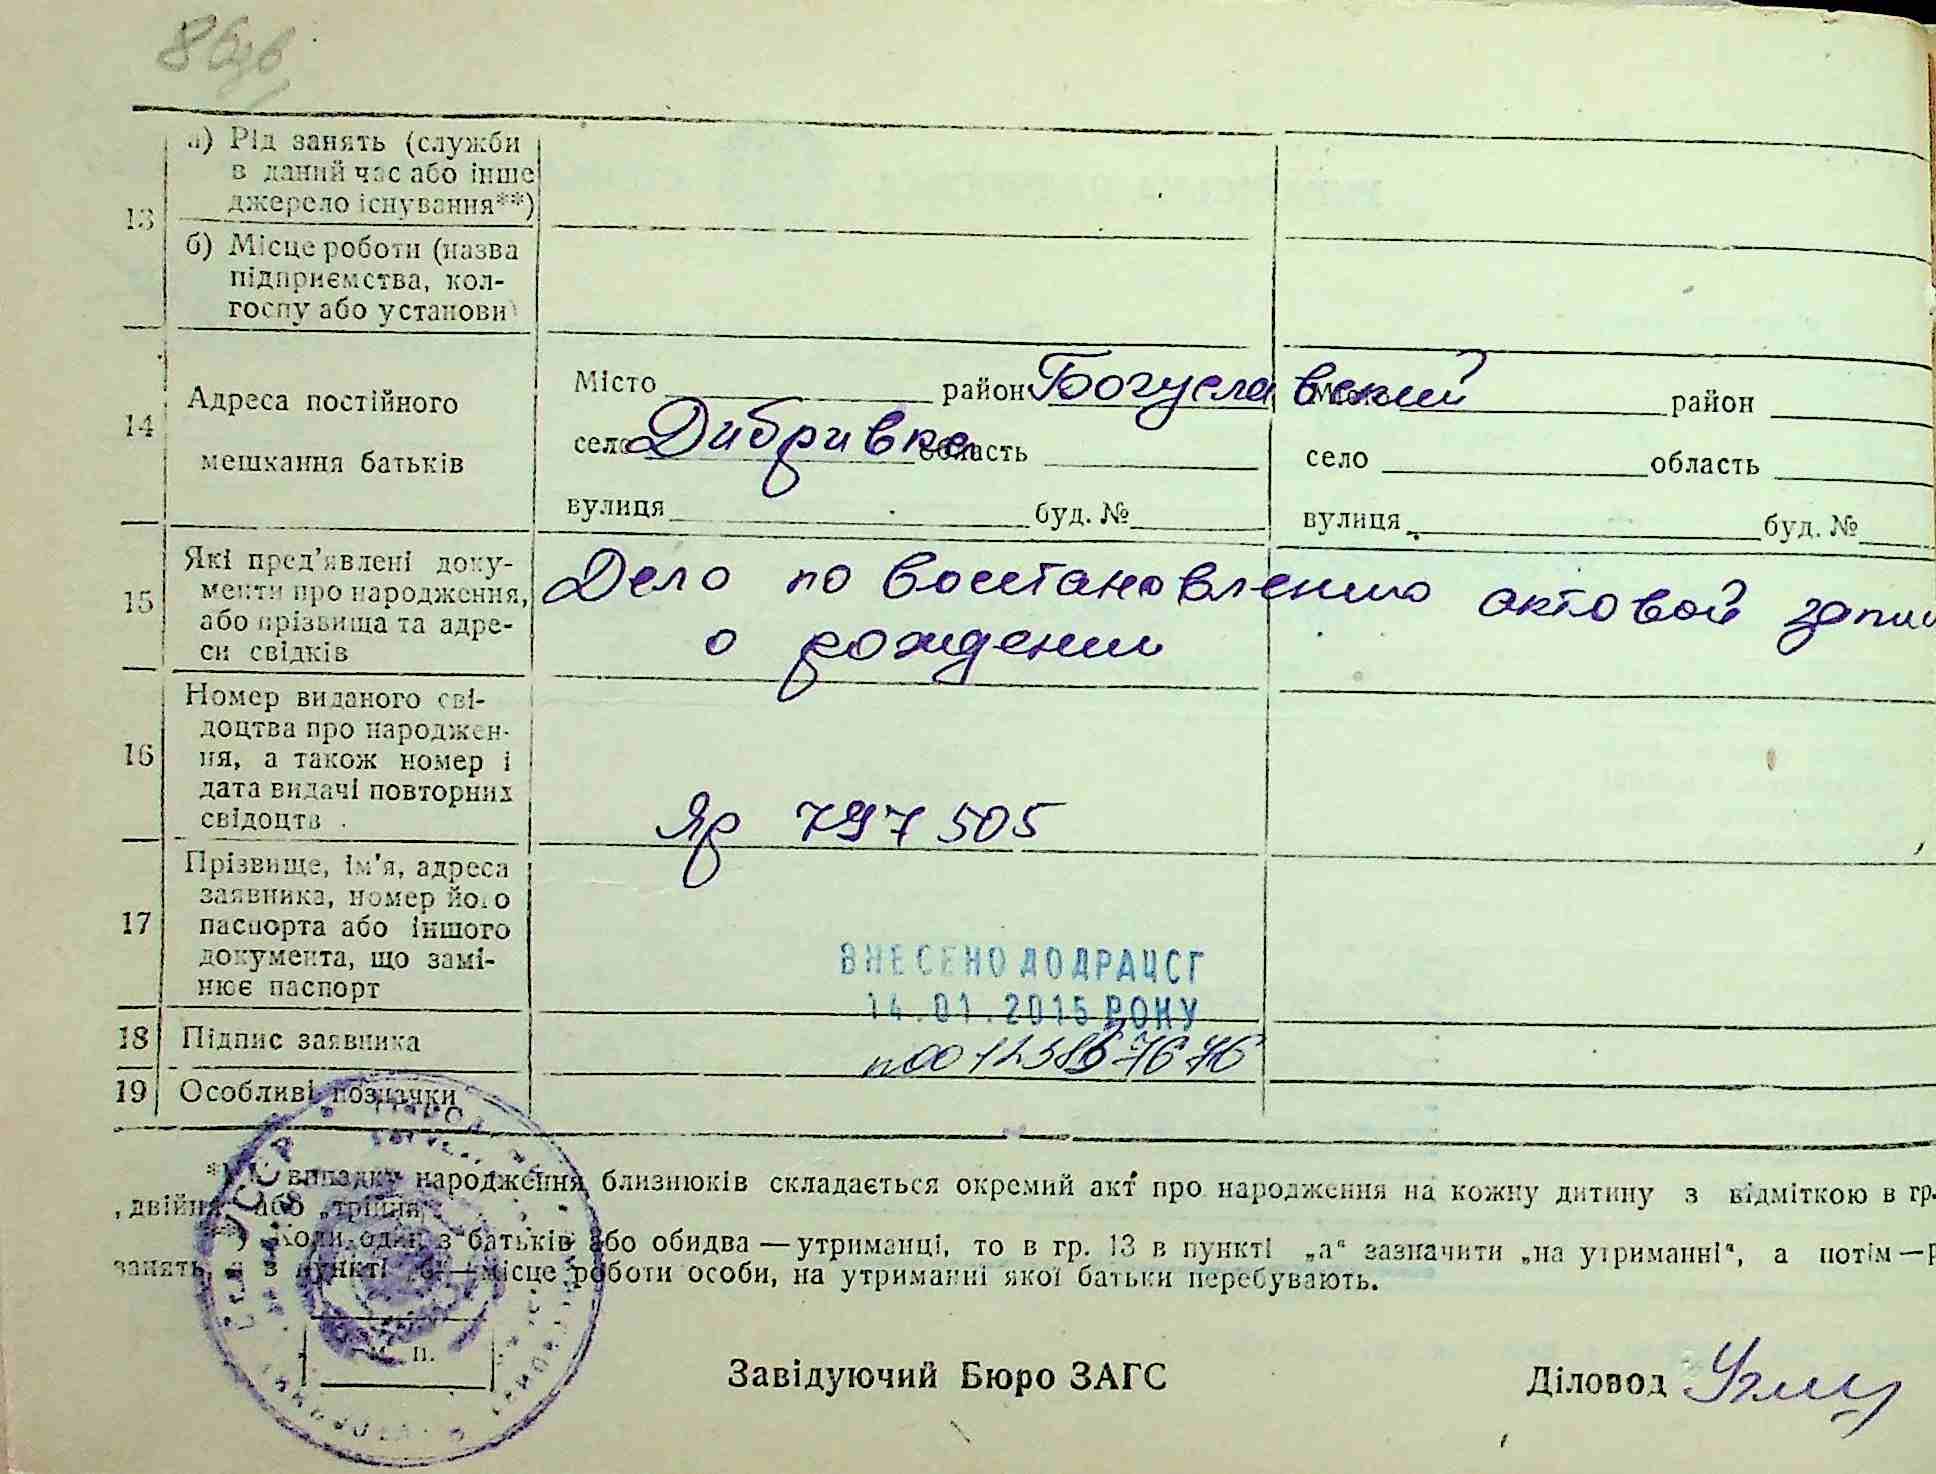 13 а) Рід занять (служби
в даний час або інше
джерело існування**)
б) Місце роботи (назва
підприємства, кол-
госпу або установи)
14 Адреса постійного
мешкання батьків
Місто район Богуславский Місто район
село Дибривка область село область
вулиця буд. № вулиця буд. №
15 Які пред'явлені доку-
менти про народження,
або прізвища та адре-
си свідків
Дело по восстановлению актовой
о рождении
16 Номер виданого сві-
доцтва про народжен-
ня, а також номер і
дата видачі повторних
свідоцтв
Яр 797505
17 Прізвище, ім'я, адреса
заявника, номер його
паспорта або іншого
документа, що замі-
нює паспорт
ВНЕСЕНО ДО ДРАЦСГ
14.01.2015 РОКУ
18 Підпис заявника
19 Особливі позначки
*) У випадку народження близнюків складається окремий акт про народження на кожну дитину з відміткою в гр.
„двійня" або „трійня".
**) Коли один з батьків або обидва — утриманці, то в гр. 13 в пункті „а" зазначити „на утриманні", а потім —
занять, а в пункті „б" — місце роботи особи, на утриманні якої батьки перебувають.
М. П.
Завідуючий Бюро ЗАГС Діловод